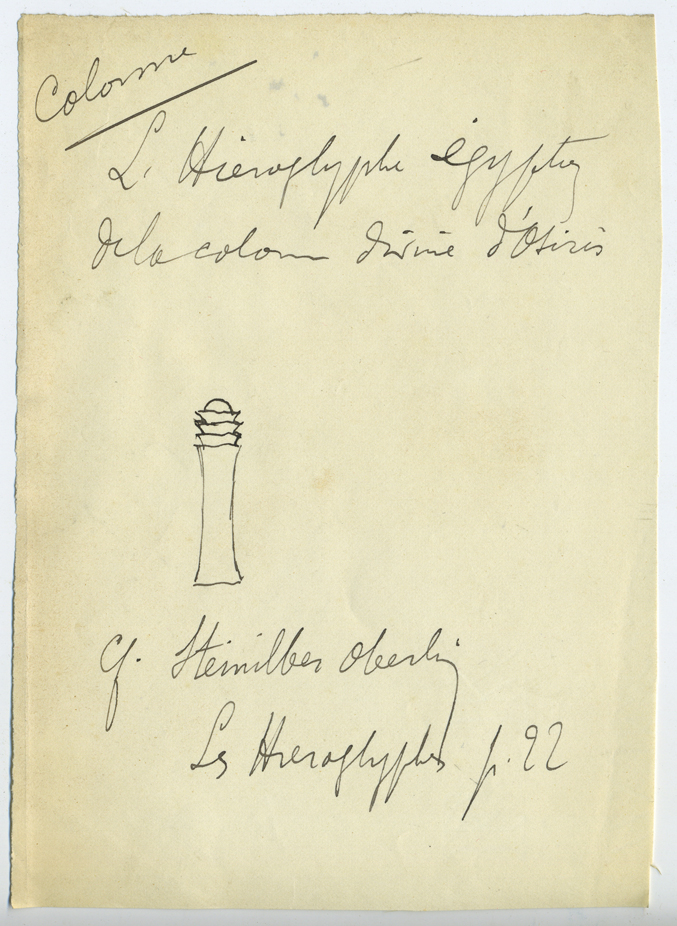 Colonne
Le Hieroglyphe égyptien
de la colonne divine d'Osiris
cf. Steinilber Oberlin
Les Hieroglyphes p. 22